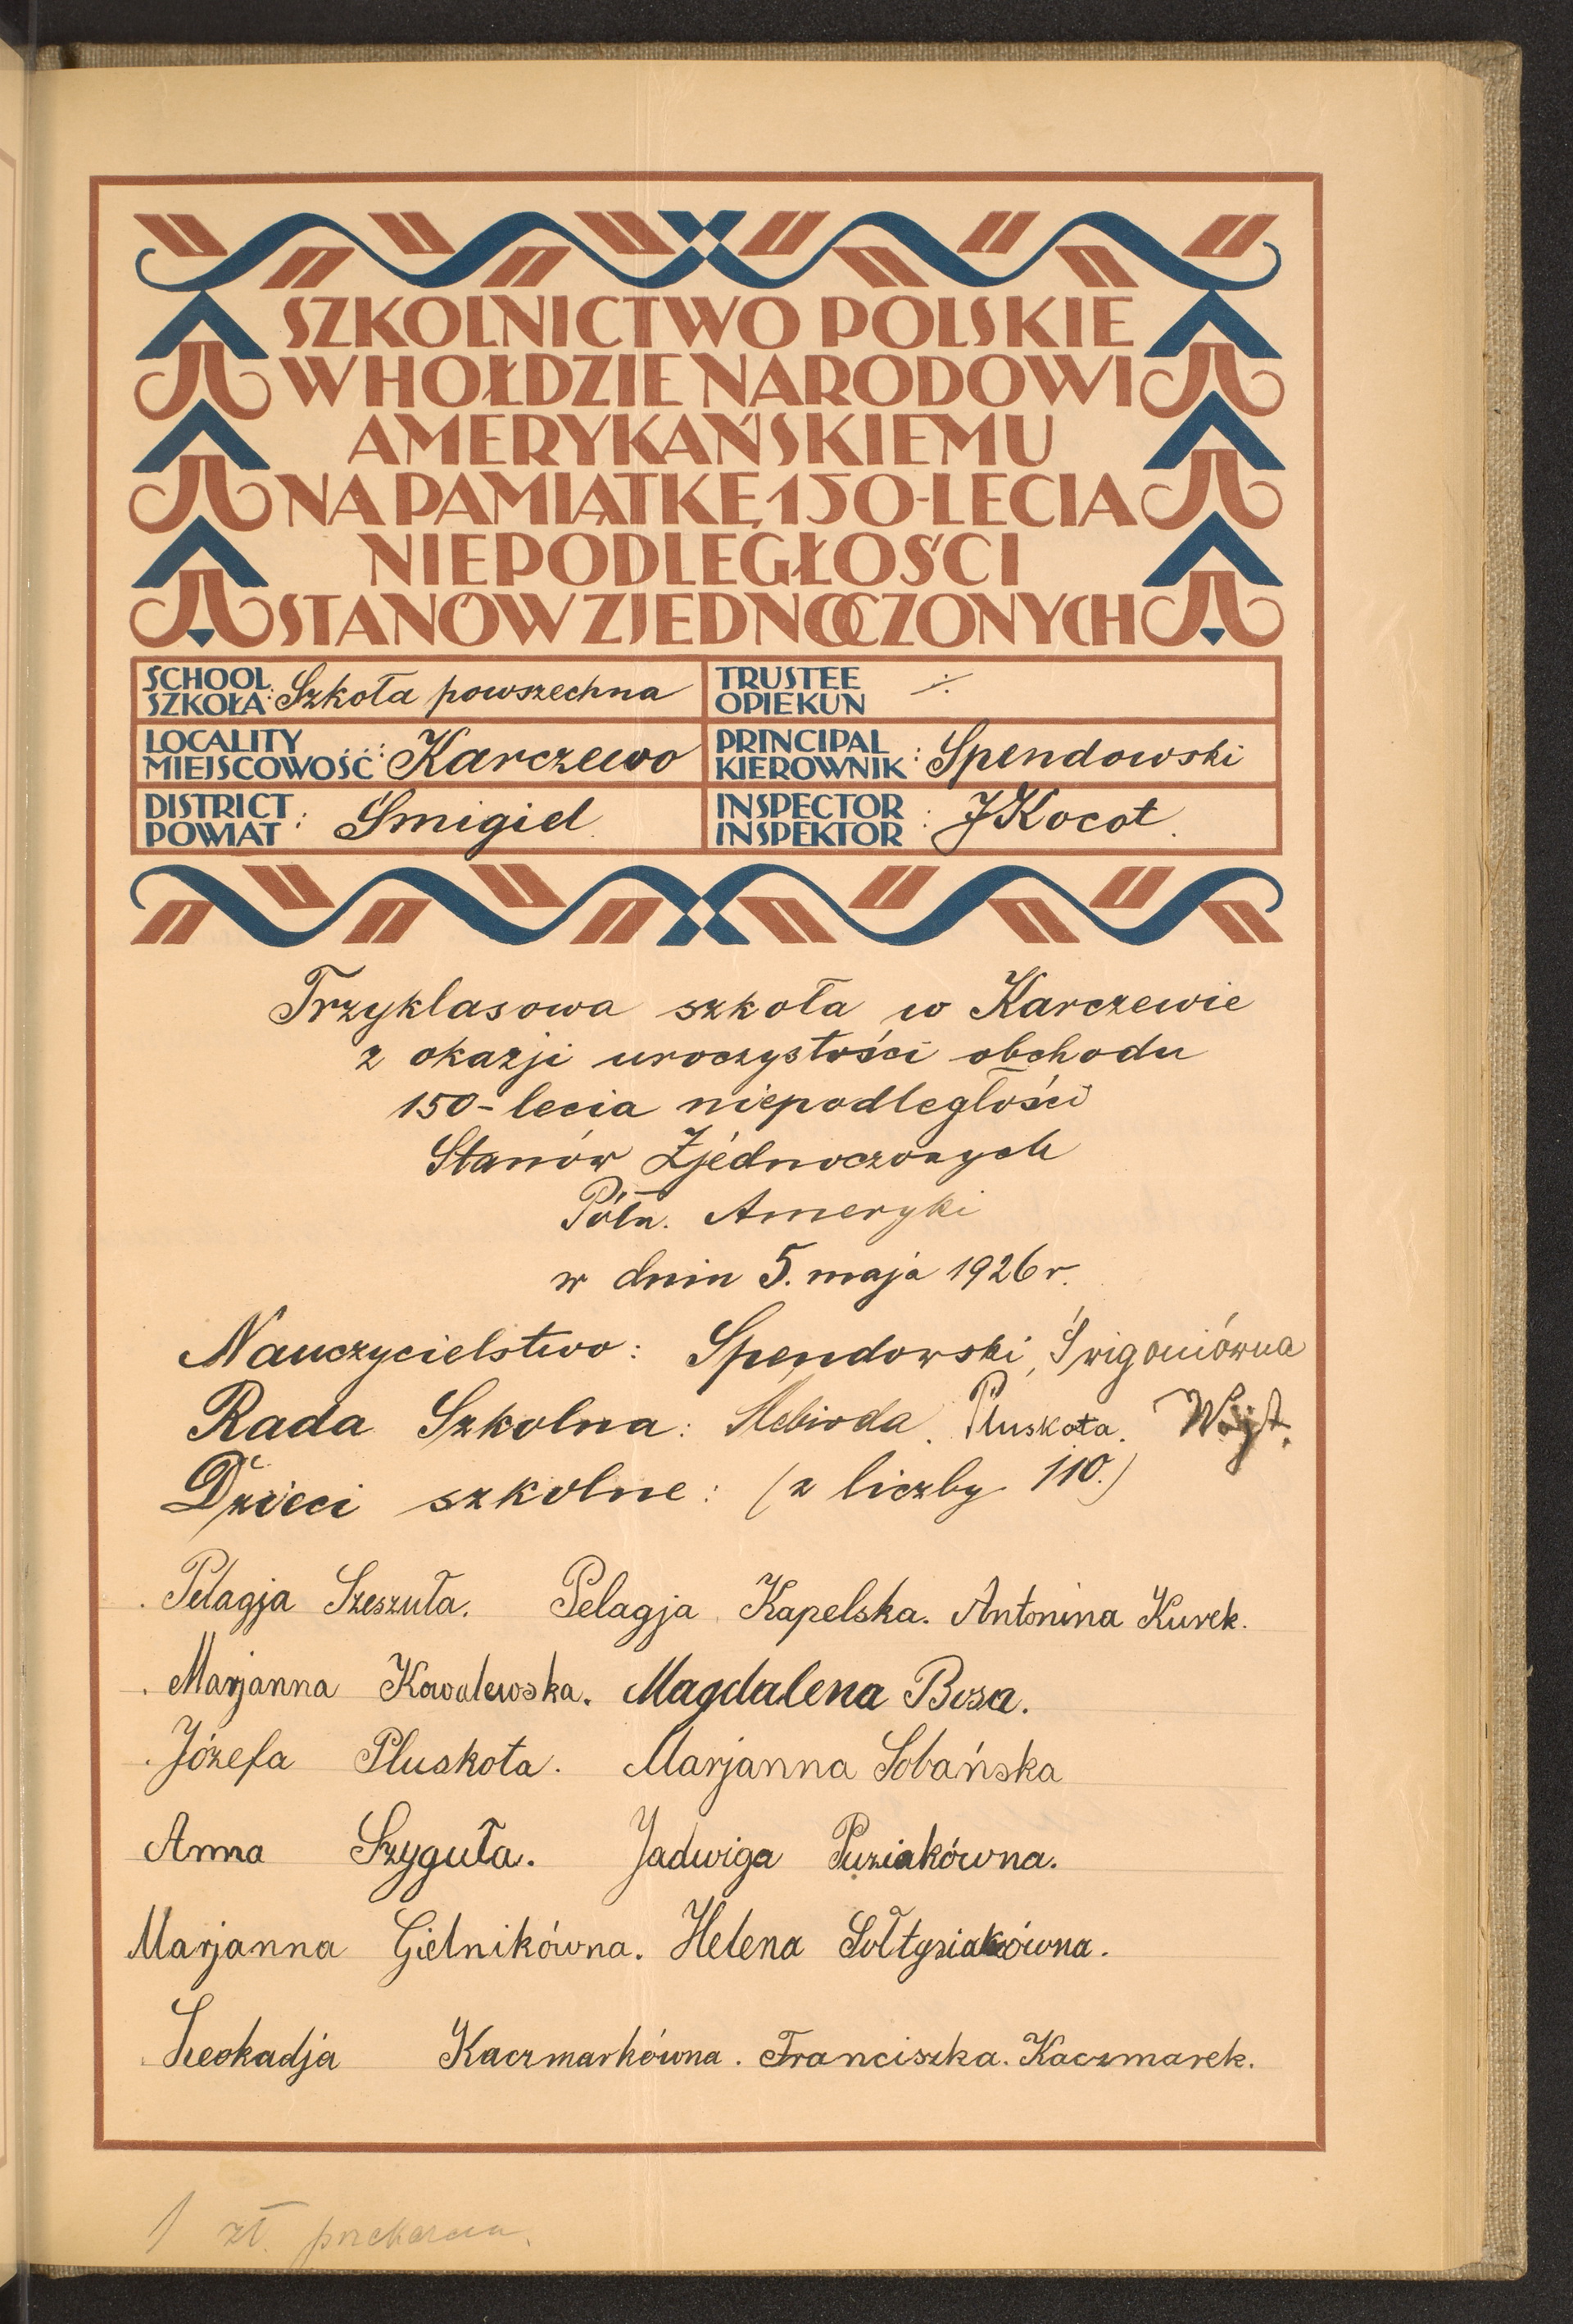 SZKOLNICTWO POLSKIE
W HOŁDZIE NARODOWI
AMERYKAŃSKIEMU
NA PAMIĄTKĘ 150-LECIA
NIEPODLEGŁOŚCI
STANÓW ZJEDNOCZONYCH
SCHOOL
SZKOŁA: Szkoła powszechna
TRUSTEE
OPIEKUN ÷
LOCALITY
MIEJSCOWOŚĆ: Karczewo
PRINCIPAL
KIEROWNIK: Spendowski
DISTRICT
POWIAT: Śmigiel
INSPECTOR
INSPEKTOR: J Kocot.
Trzyklasowa szkoła w Karczewie
z okazji uroczystości obchodu
150-lecia niepodległości
Stanów Zjednoczonych
Półn. Ameryki
w dniu 5. maja 1926 r.
Nauczycielstwo: Spendowski, Świgoniówna
Rada Szkolna: Skibioda. Pluskota. Wojt.
Dzieci szkolne: (z liczby 110.)
Pelagja Szeszuła. Pelagja Kapelska. Antonina Kurek.
Marjanna Kowalewska. Magdalena Bosa.
Józefa Pluskota. Marjanna Sobańska
Anna Szyguła. Jadwiga Puziakówna.
Marjanna Gielnikówna. Helena Sołtysiakówna.
Leokadja Kaczmarkówna. Franciszka. Kaczmarek.
1 zł. przekazem.